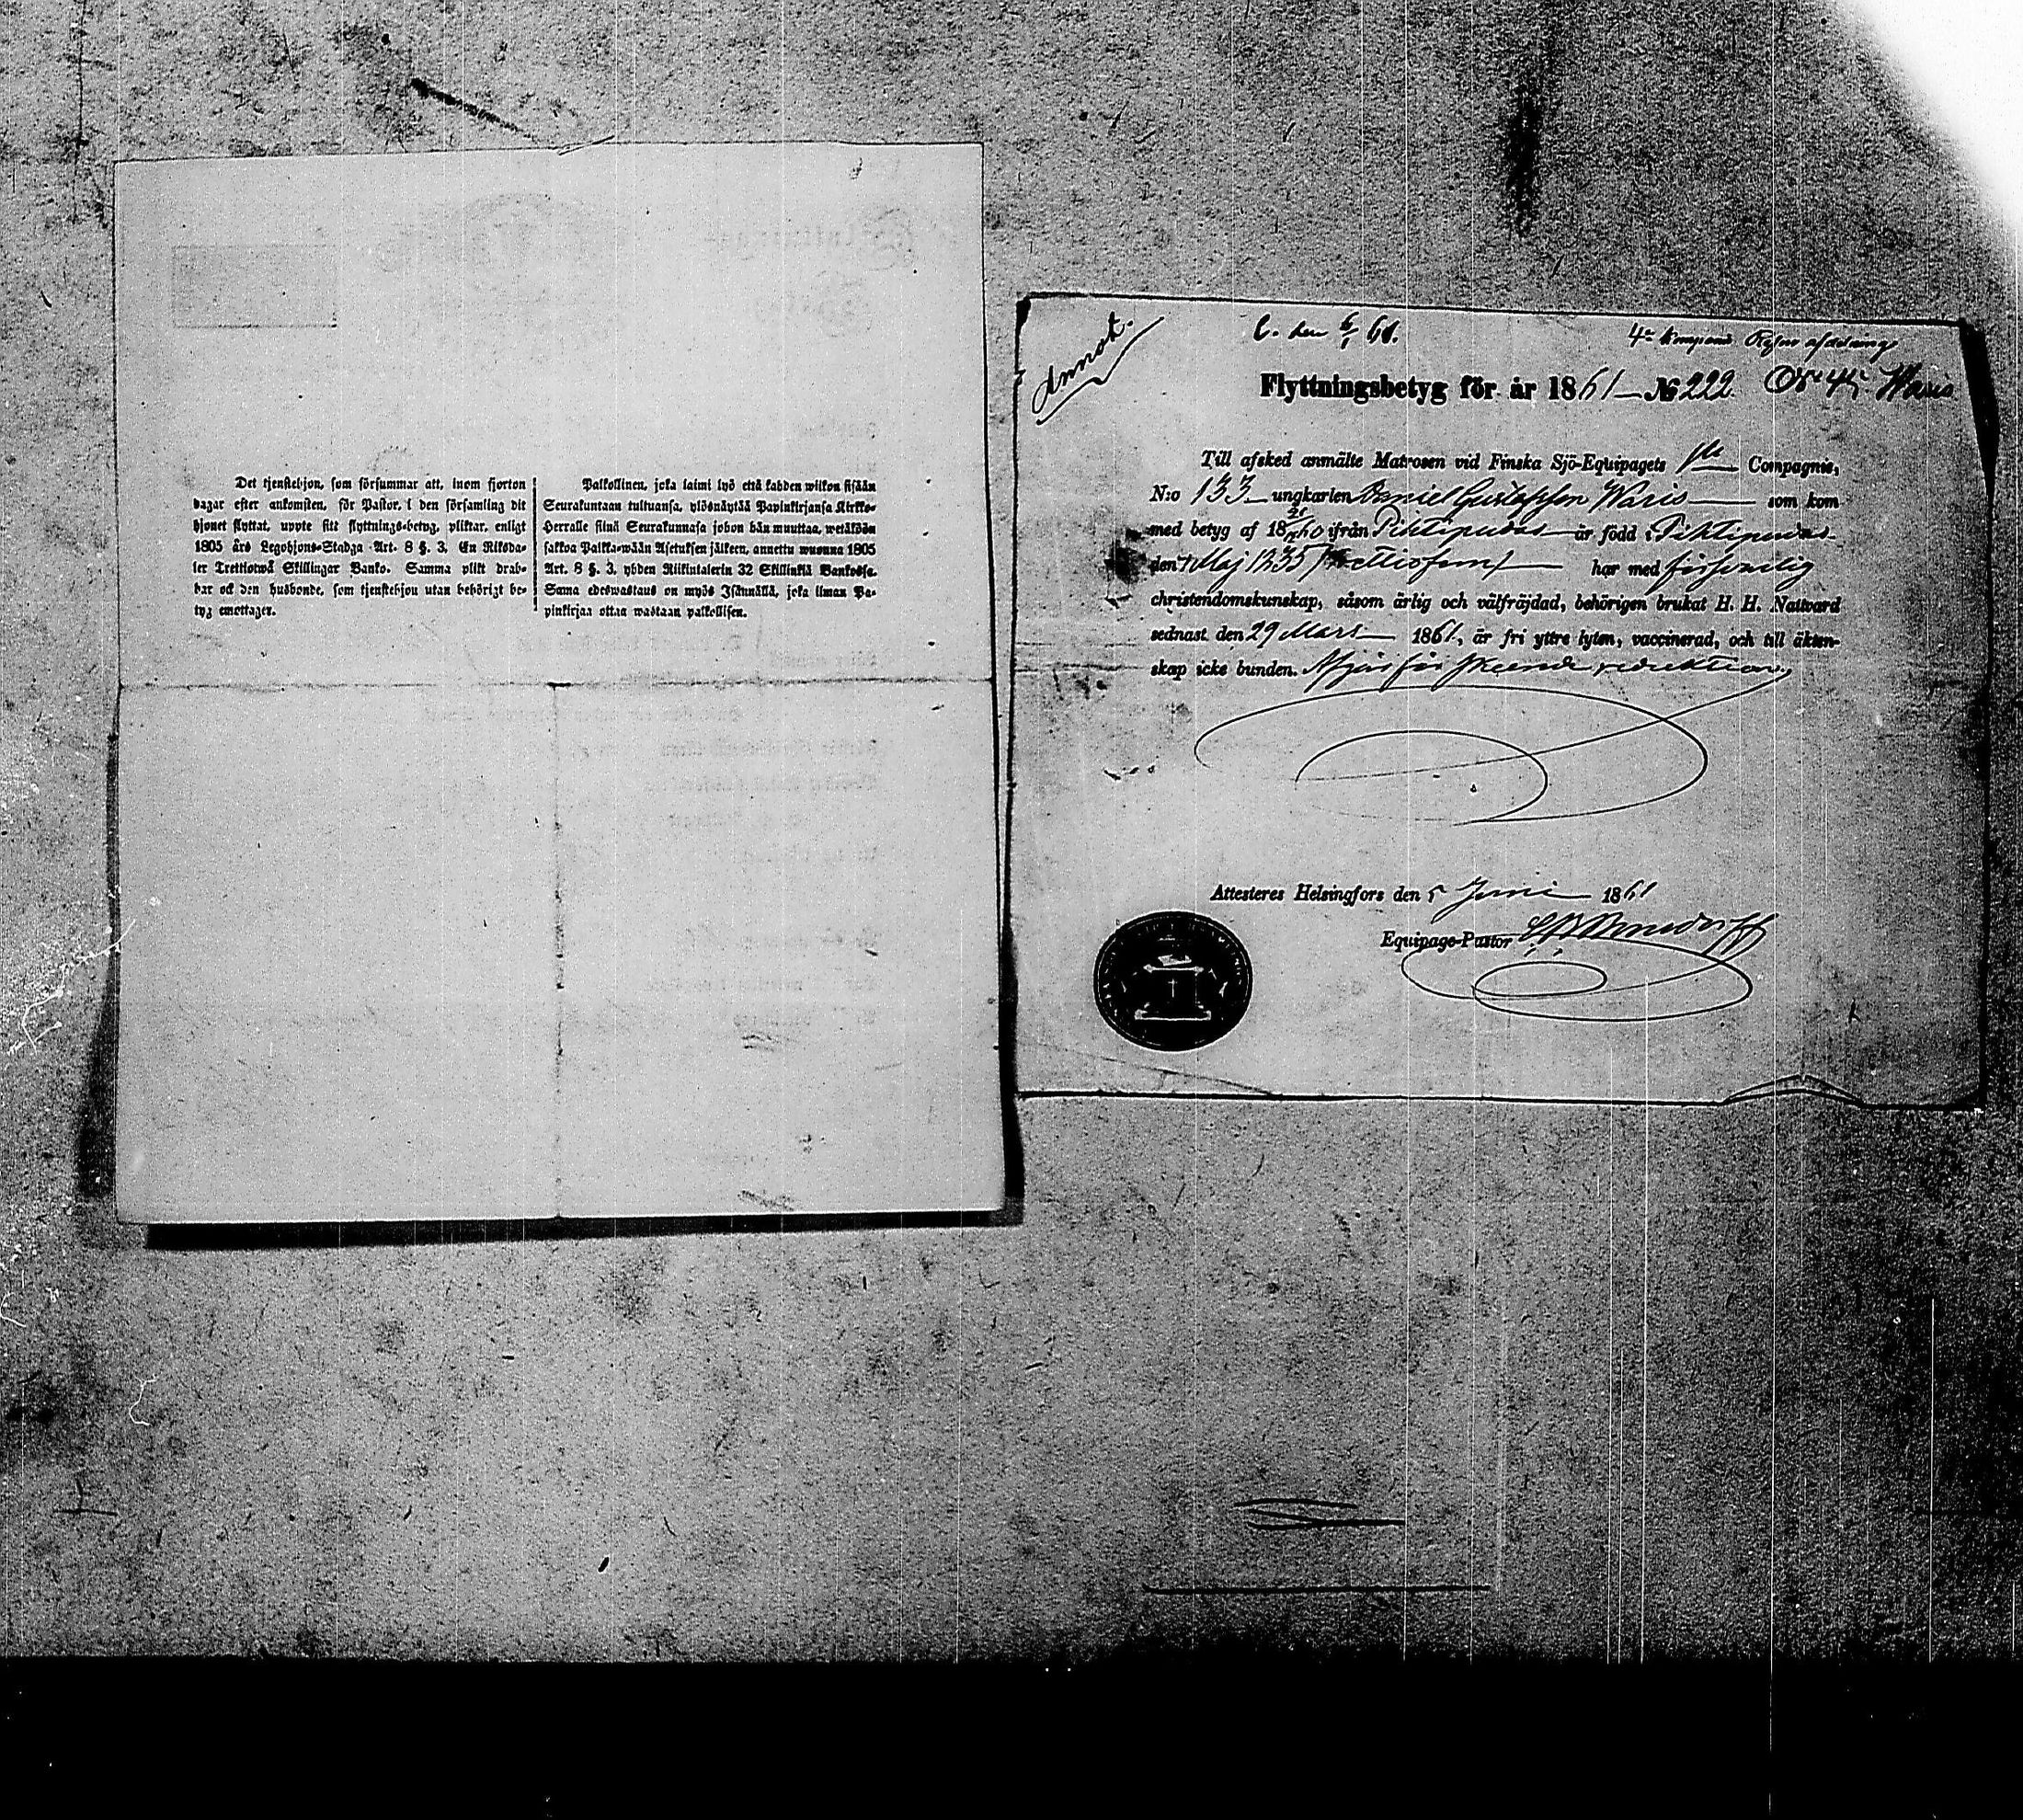 Det tjenstehjon, som försummar att, inom fjorton
dagar efter ankomsten, för Pastor, i den församling dit
hjonet flyttat, uppte sitt flyttnings-betyg, pliktar, enligt
1805 års Legohjons-Stadga Art. 8 §. 3. En Riksda-
ler Trettiotwå Skillingar Banko. Samma plikt drab-
bar ock den husbonde, som tjenstehjon utan behörigt be-
tyg emottager.
Palkollinen, joka laimi lyö että kahden wiikon sisään
Seurakuntaan tultuansa, ylösnäytää Papinkirjansa Kirkko-
Herralle siinä Seurakunnasa johon hän muuttaa, wetäköön
sakkoa Palkka-wään Asetuksen jälkeen, annettu wuonna 1805
Art. 8 §. 3, yhden Riikintalerin 32 Skillinkiä Bankossa.
Sama edeswastaus on myös Isännällä, joka ilman Pa-
pinkirjaa ottaa wastaan palkollisen.
Annot.
den 6/1 61.
4de Kompani
Flyttningsbetyg för år 1861 — № 222. Waris
Till afsked anmälte Matrosen vid Finska Sjö-Equipagets 1sta Compagnie,
N:o 133 ungkarlen Daniel Gustafsson Waris som kom
med betyg af 1860 ifrån Pihtipudas är född i Pihtipudas
den 7 Maj 1835 har med försvarlig
christendomskunskap, såsom ärlig och välfräjdad, behörigen brukat H. H. Nattvard
sednast den 29 Mars 1861, är fri yttre lyten, vaccinerad, och till äkten-
skap icke bunden. Afgår för skeende reduktion.
Attesteres Helsingfors den 5 Juni 1861
Equipage-Pastor